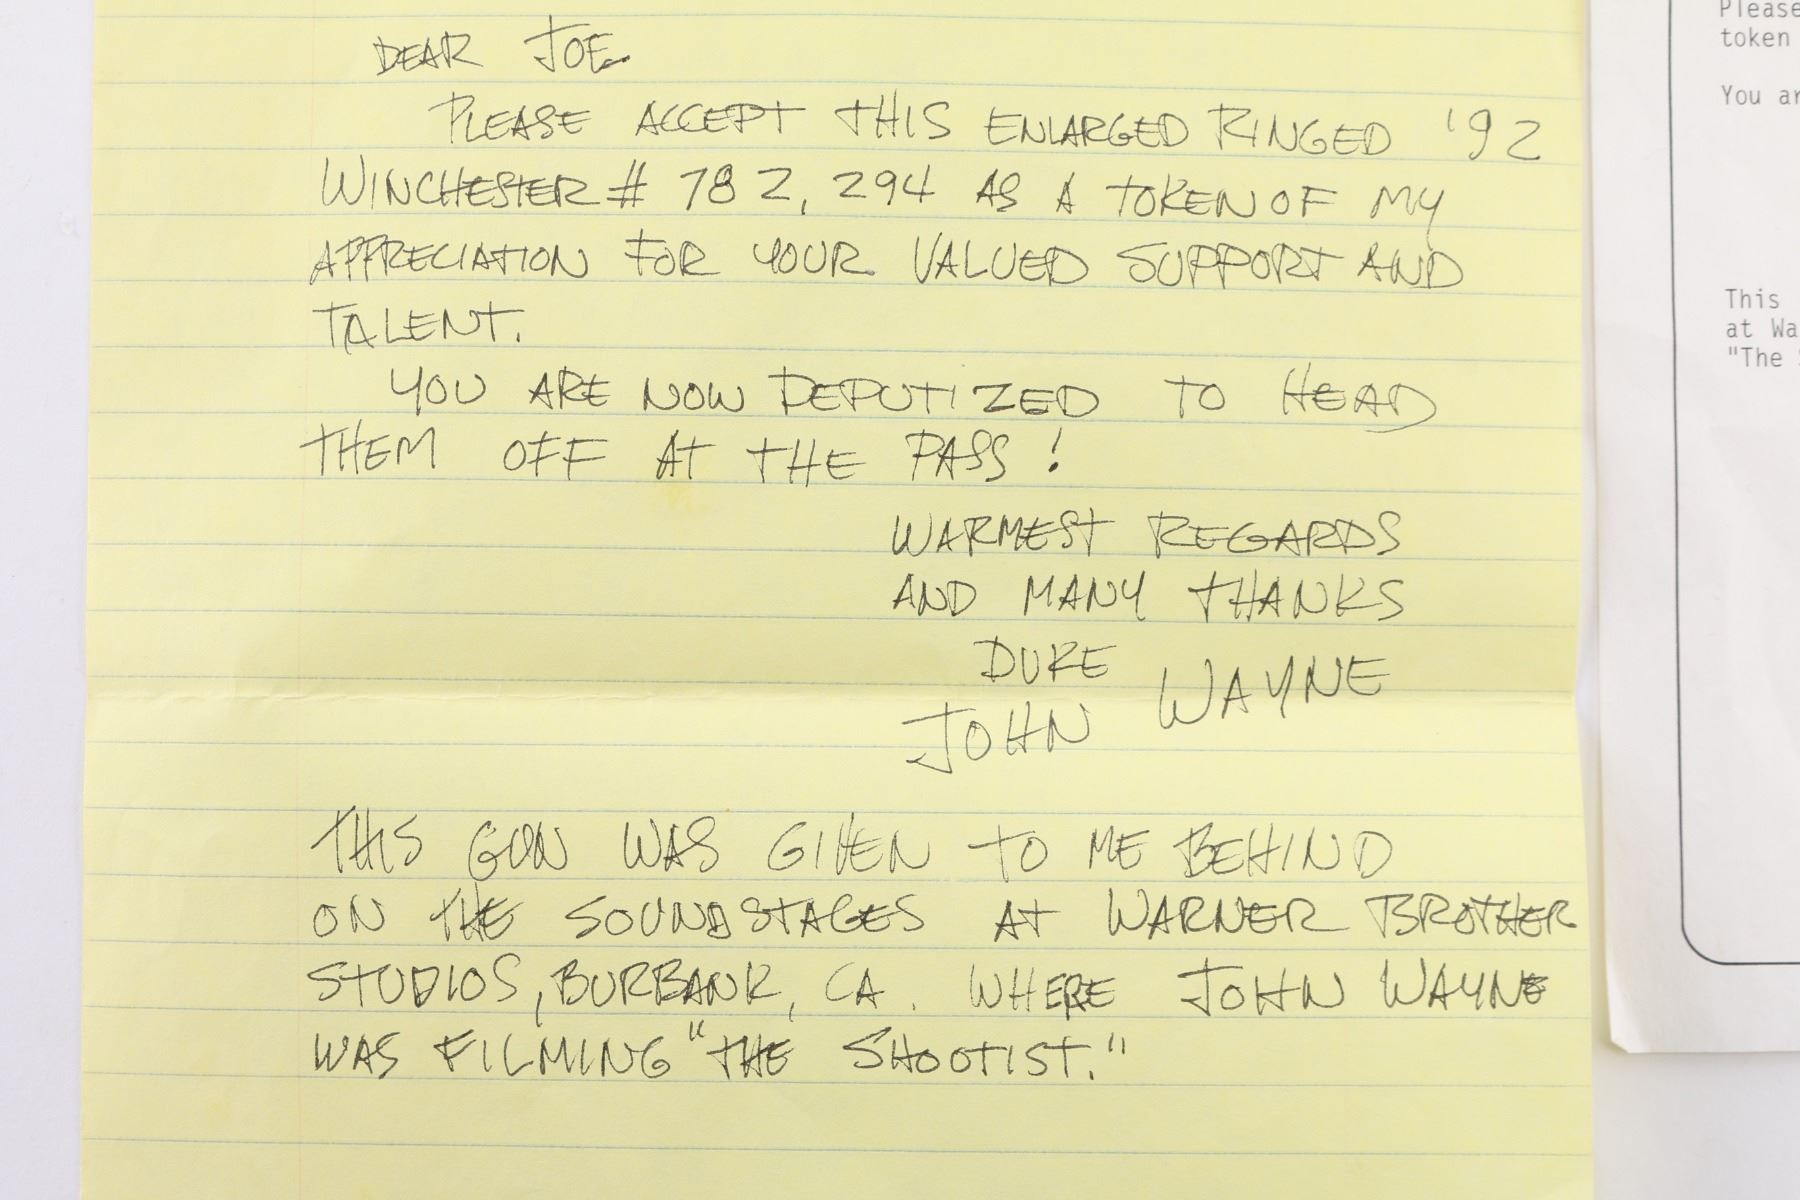 DEAR JOE.
PLEASE ACCEPT THIS ENLARGED RINGED '92
WINCHESTER # 782,294 AS A TOKEN OF MY
APPRECIATION FOR YOUR VALUED SUPPORT AND
TALENT.
YOU ARE NOW DEPUTIZED TO HEAD
THEM OFF AT THE PASS!
WARMEST REGARDS
AND MANY THANKS
DUKE
JOHN WAYNE
THIS GUN WAS GIVEN TO ME BEHIND
ON THE SOUNDSTAGES AT WARNER BROTHER
STUDIOS, BURBANK, CA. WHERE JOHN WAYNE
WAS FILMING "THE SHOOTIST."
Please
token
You ar
This
at Wa
"The